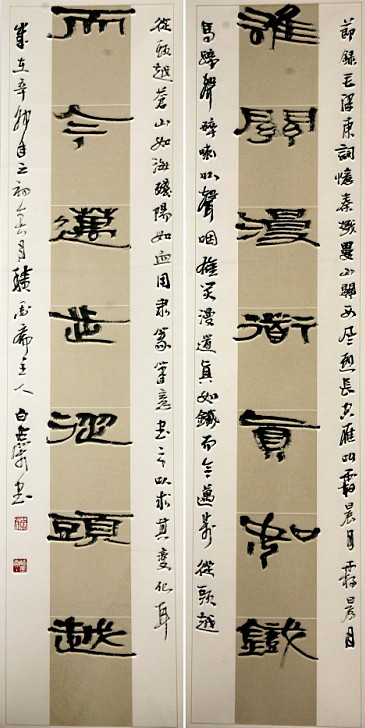 節錄毛澤東詞憶秦娥婁山關西風烈長空雁叫霜晨月霜晨月
雄關漫道真如鐵
馬蹄聲碎喇叭聲咽雄关漫道真如鐵而今邁步從頭越
從頭越蒼山如海殘陽如血用隶篆筆意書之以求其變化耳
而今邁步從頭越
歲在辛卯年之初冬月墨齋主人白書